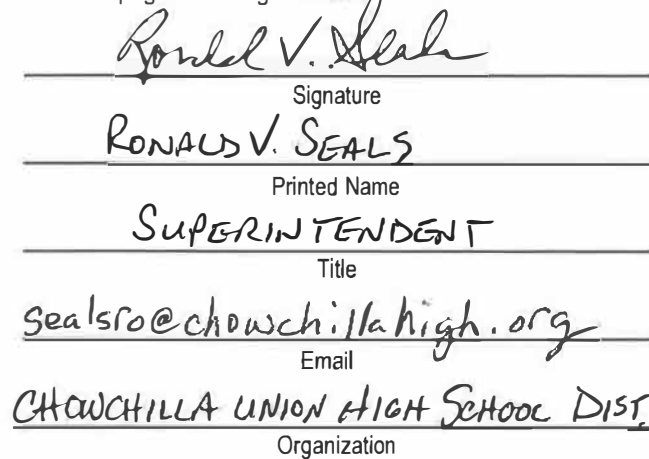 Ronald V. Seals
Signature
RONALD V. SEALS
Printed Name
SUPERINTENDENT
Title
sealsro@chowchillahigh.org
Email
CHOWCHILLA UNION HIGH SCHOOL DIST.
Organization